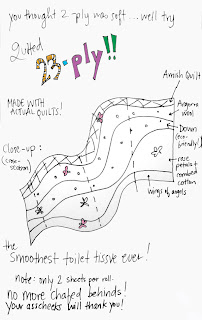 you thought 2-ply was soft...well try
Quilted
23-ply!!
MADE WITH
ACTUAL QUILTS!
Amish Quilt
Angora
wool
Down
(eco-
friendly!)
Close-up:
(cross-
section)
rose
petals +
combed
cotton
wings of
angels
the
Smoothest toilet tissue ever!
note: only 2 sheets per roll.
no more chafed behinds!
your asscheeks will thank you!